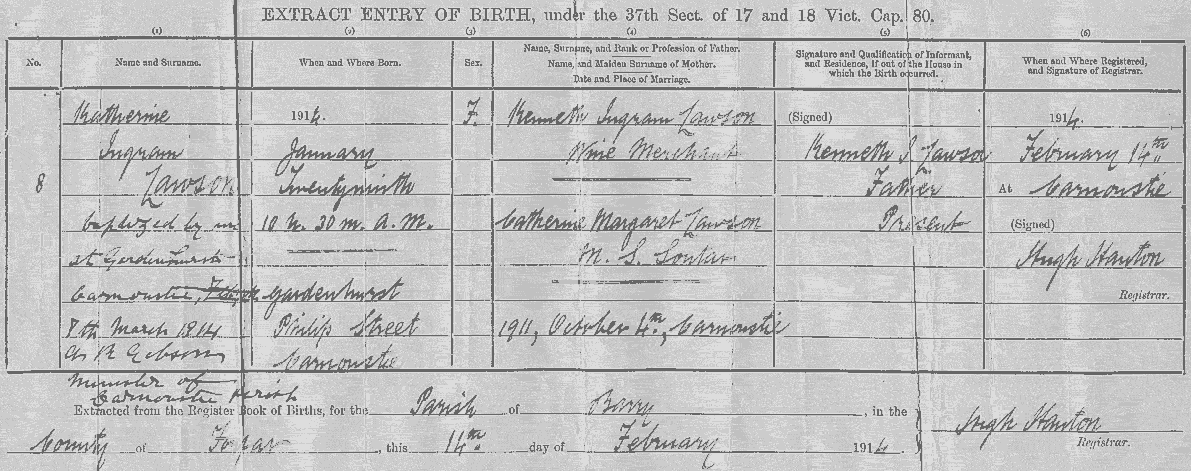 EXTRACT ENTRY OF BIRTH, under the 37th Sect. of 17 and 18 Vict. Cap. 80.
(1) (2) (3) (4) (5) (6)
No.
Name and Surname.
When and Where Born.
Sex.
Name, Surname, and Rank or Profession of Father.
Name, and Maiden Surname of Mother.
Date and Place of Marriage.
Signature and Qualification of Informant,
and Residence, if out of the House in
which the Birth occurred.
When and Where Registered,
and Signature of Registrar.
8
Katherine
Ingram
Lawson
baptized by me
at Gardenhurst
Carnoustie,
8th March 1914
Gibson
Minister of
Carnoustie Parish
1914.
January
Twentyninth
10 h. 30 m. A.M.
Gardenhurst
Philip Street
Carnoustie
F.
Kenneth Ingram Lawson
Wine Merchant
Catherine Margaret Lawson
M. S. Soutar
1911, October 4th, Carnoustie
(Signed)
Kenneth I Lawson
Father
Present
1914.
February 14th
At Carnoustie
(Signed)
Hugh Hanton
Registrar.
Extracted from the Register Book of Births, for the Parish of Barry, in the
County of Forfar, this 14th day of February 1914.
Hugh Hanton
Registrar.